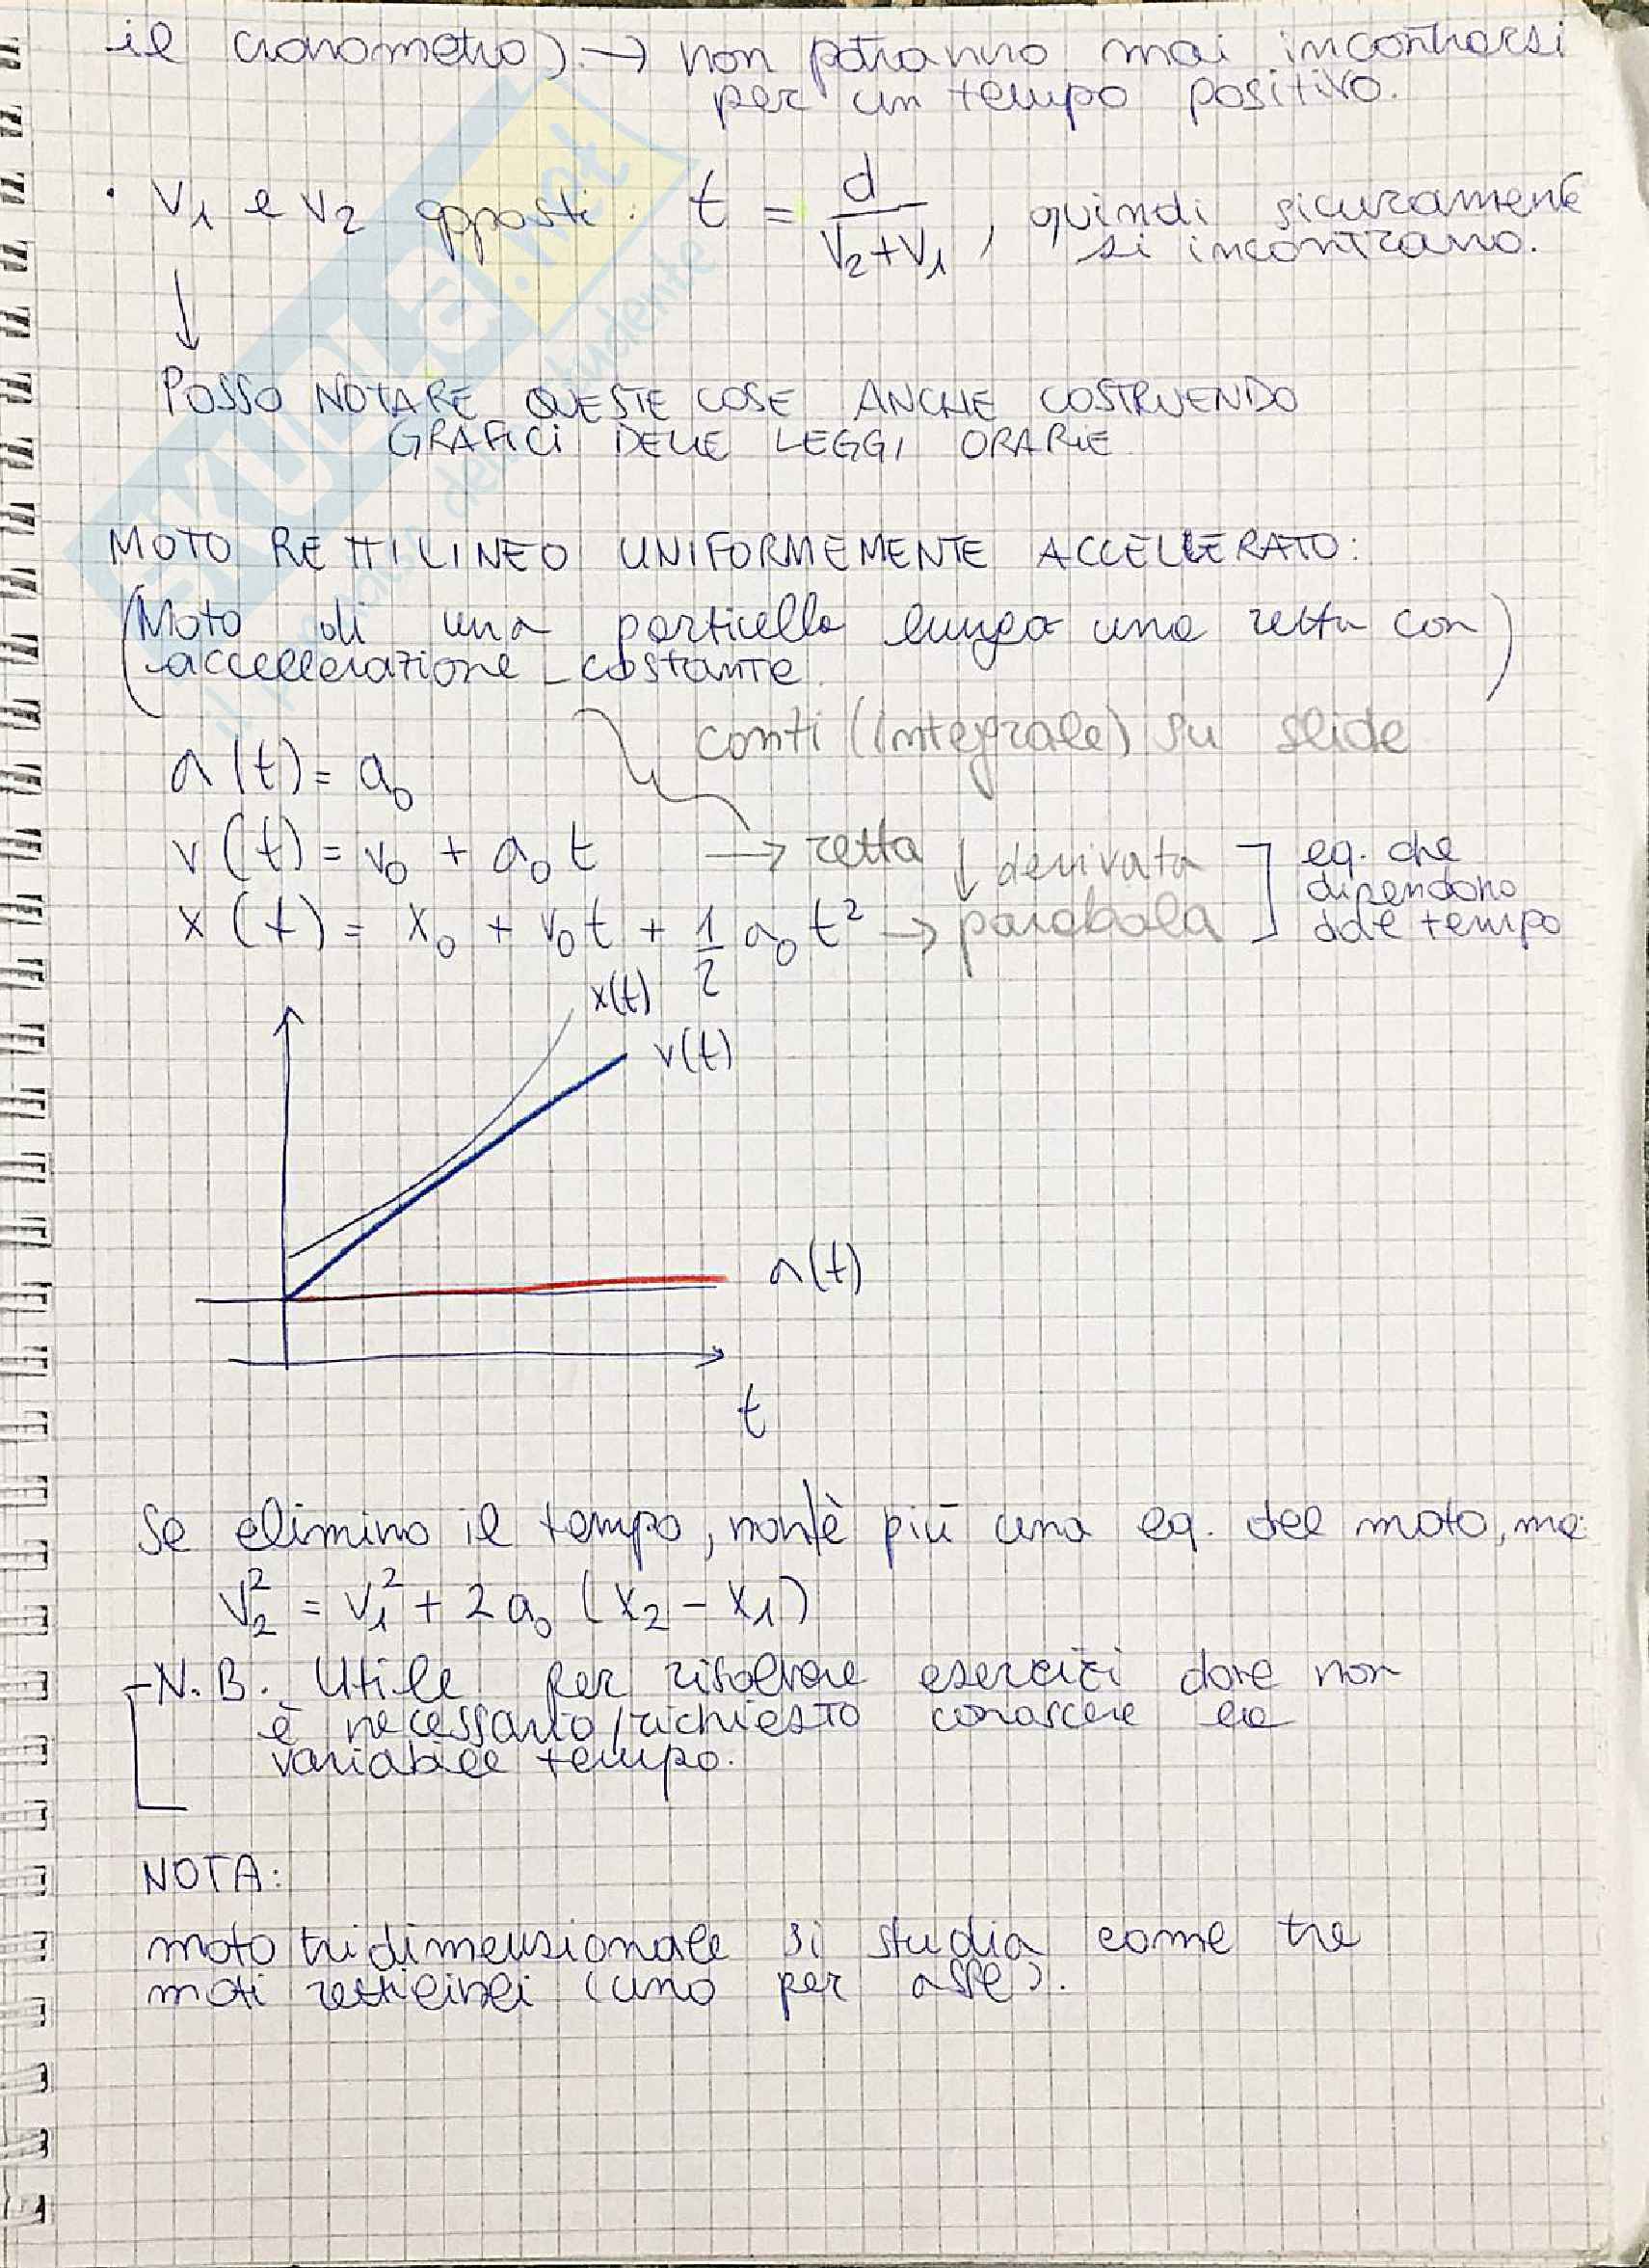 il cronometro). → non potranno mai incontrarsi
per un tempo positivo.
• V₁ e V₂ opposti: t = d/(V₂+V₁), quindi sicuramente
si incontrano.
↓
POSSO NOTARE QUESTE COSE ANCHE COSTRUENDO
GRAFICI DELLE LEGGI ORARIE
MOTO RETTILINEO UNIFORMEMENTE ACCELLERATO:
(Moto di una particella lungo una retta con
accellerazione costante)
conti (integrale) su slide
a(t) = a₀
v(t) = v₀ + a₀t → retta ↓ derivata
x(t) = x₀ + v₀t + 1/2 a₀t² → parabola
] eq. che
dipendono
dal tempo
x(t)
v(t)
a(t)
t
Se elimino il tempo, non è più una eq. del moto, ma
V₂² = V₁² + 2a₀ (x₂ - x₁)
N.B. Utile per risolvere esercizi dove non
è necessario/richiesto conoscere la
variabile tempo.
NOTA:
moto tridimensionale si studia come tre
moti rettilinei (uno per asse).
SKUOLA.net
il paradiso dello studente